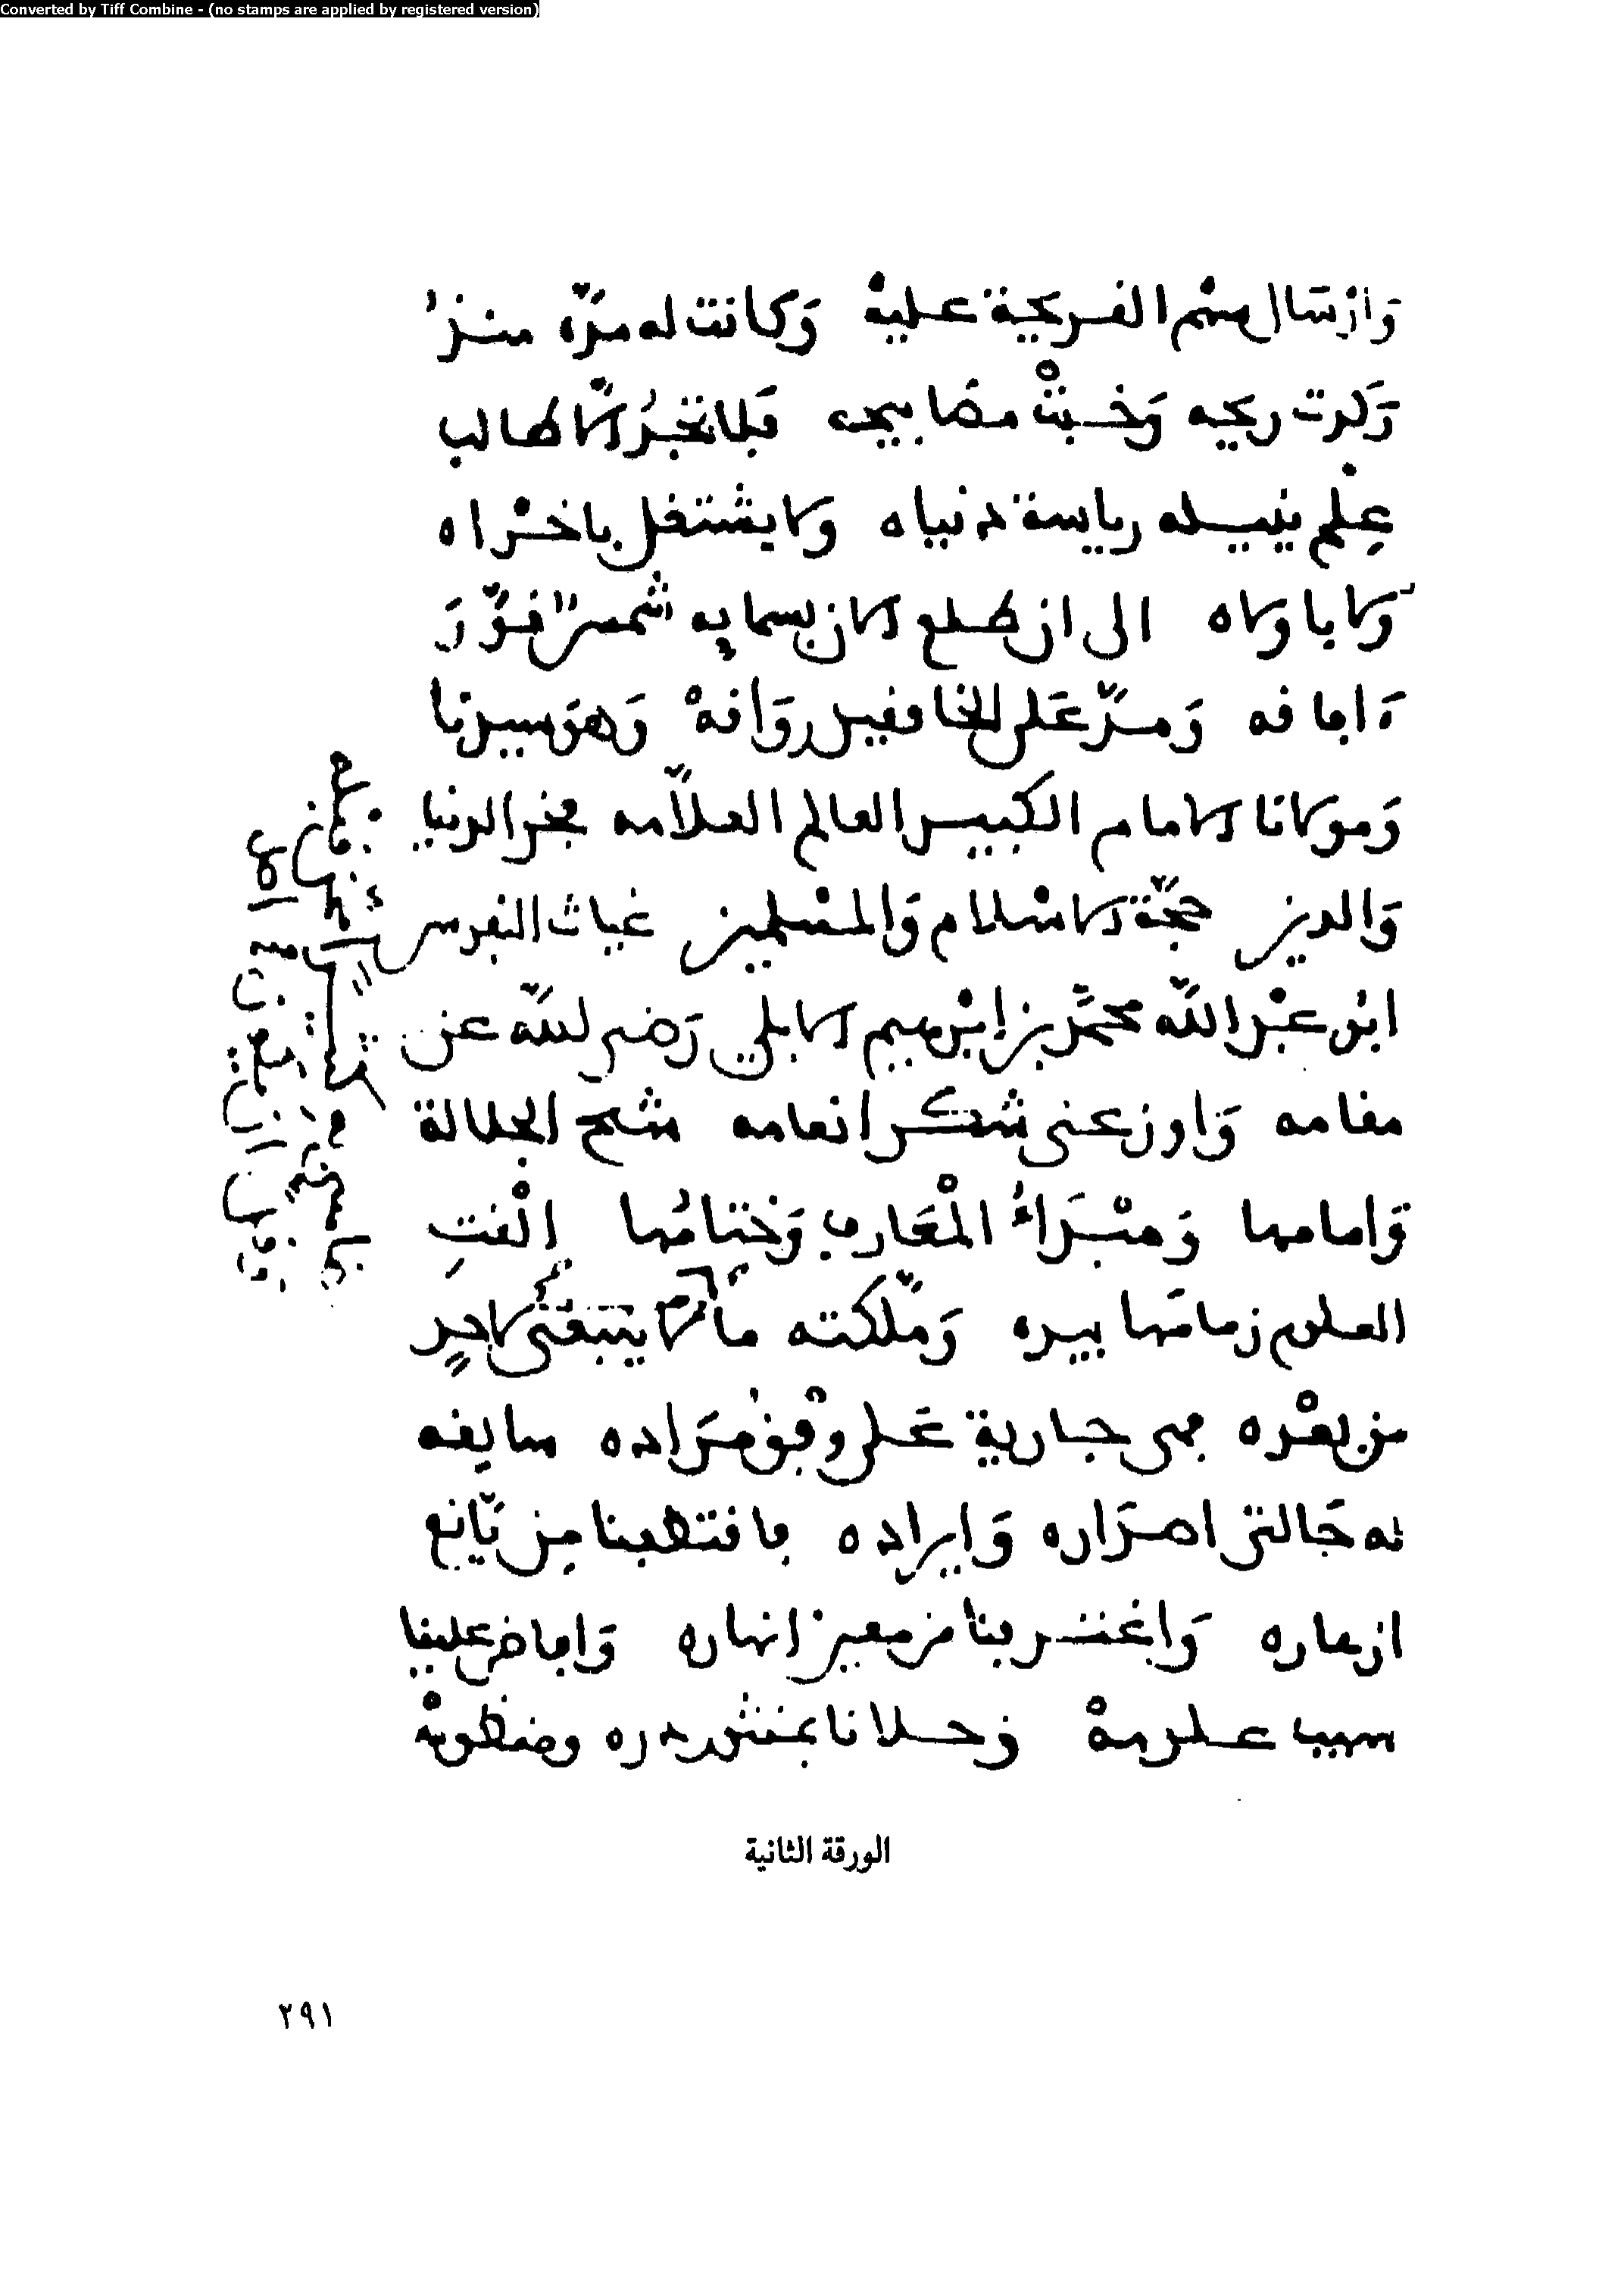 Converted by Tiff Combine - (no stamps are applied by registered version)
وَارْسَال سهْم القريحة عليهْ وَكانت له مدّه منذُ
رَكدت ريحه وَخبتْ مصَابيحه فلا تجدُ الا طالب
عِلْم ينيله رياسة دنياه ولا يشتغل باخْراه
وَلا باولاه الى ان طلع الان بسمايه شمسٌ نوّرَ
ءافاقه وَمدّ عَلى الخافقين روَاقهْ وَهوَ سيدنا
وَمولانا الامام الكبير العالم العلاّمه فخر الدنيا
وَالدين حجّة الاسْلام وَالمسْلمين غياث النفوس
ابُو عبْد اللّه محمّد بن ابْرهيم الابلي رَضي اللّه عن
مقامه وَاوزعني شكر انعامه شيخ الجلالة
وَامامها وَمبْدَاُ الْمعَارف وَختامُها الْقتِ
العلوم زمامَها بيده وَملّكته مَا لا ينبَغي لاحدٍ
من بعْده فهي جارية عَلى وفْق مرَاده سايغه
له حَالتي اصدَاره وَايراده فاقتطفنا مِن يَانع
ازهاره وَاغترفنا من معين انهاره وَافاض علينا
سيب علومهْ وَحلانا بمنثور درره ومنظومهْ
الورقة الثانية
٢٩١